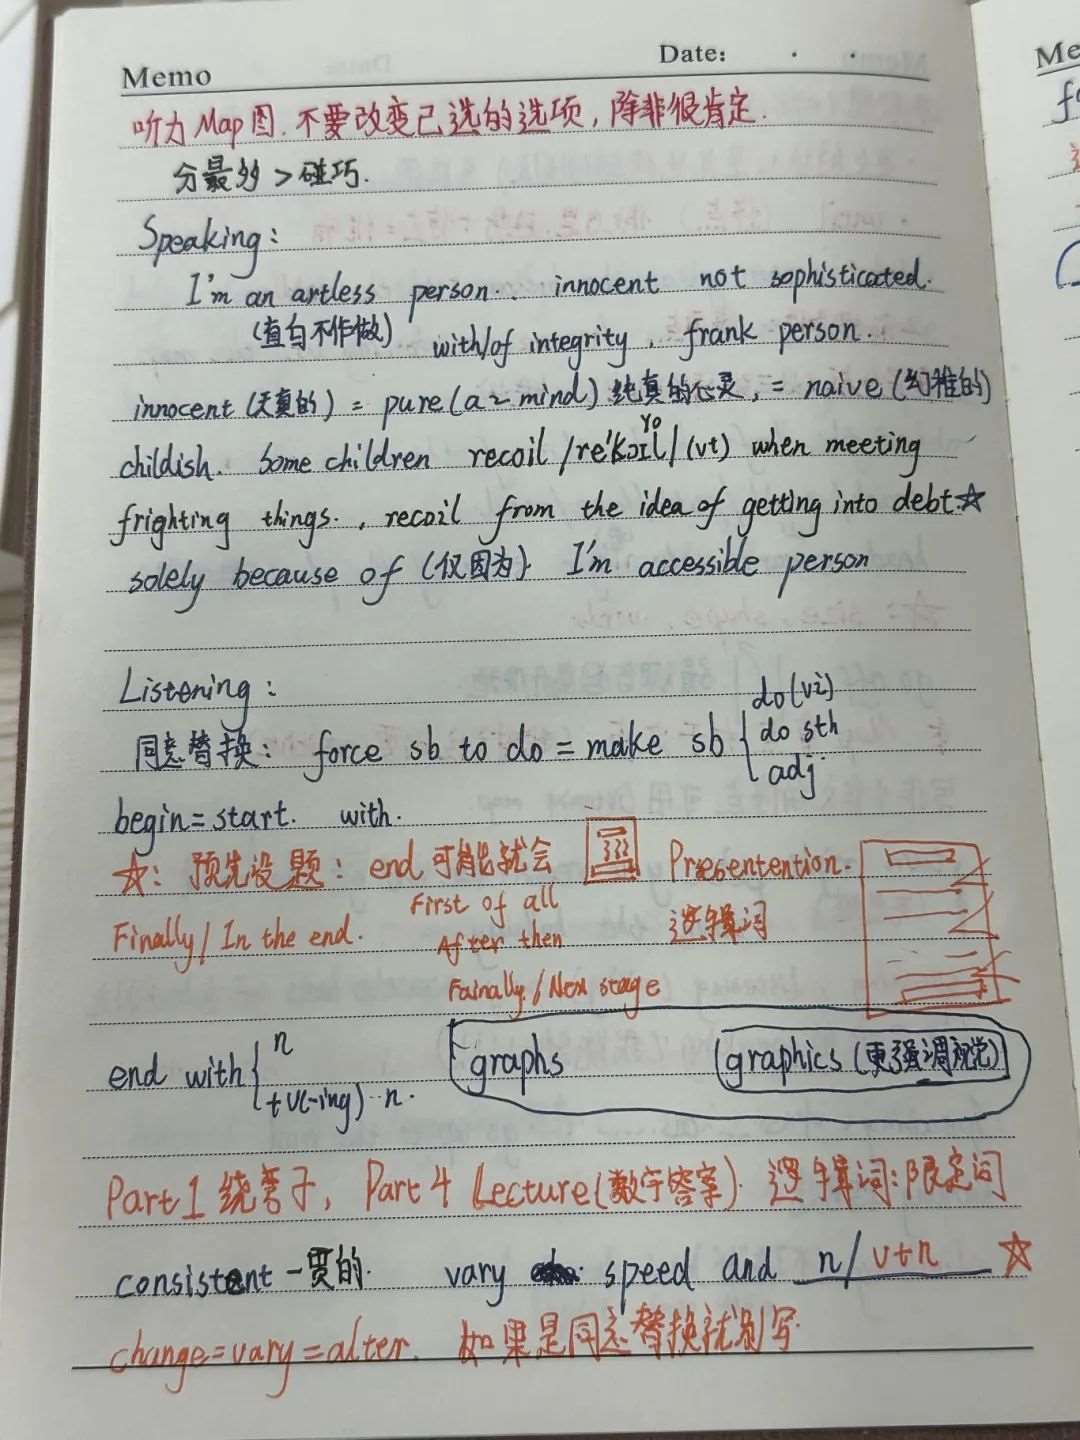 Memo Date: · ·
听力 Map图. 不要改变己选的选项, 除非很肯定.
分最多 > 碰巧.
Speaking:
I'm an artless person. innocent not sophisticated.
(直白不作做) with/of integrity, frank person.
innocent (天真的) = pure (a ~ mind) 纯真的心灵, = naive (幼稚的)
childish. Some children recoil /re'kɔɪl/ (vt) when meeting
frighting things., recoil from the idea of getting into debt ☆
solely because of (仅因为). I'm accessible person
Listening:
同意替换: force sb to do = make sb { do (vi)
do sth
adj.
begin = start. with.
☆: 预先设题: end 可能就会 Presentention.
Finally / In the end. First of all 逻辑词
After then
Fainally / Nex stage
end with { n
+ v(-ing) n.
graphs graphics (更强调视觉)
Part 1 绕弯子, Part 4 Lecture (数字答案). 逻辑词: 限定词
consistent 一贯的. vary speed and n / v+n ☆
change = vary = alter. 如果是同意替换就别写.
Me